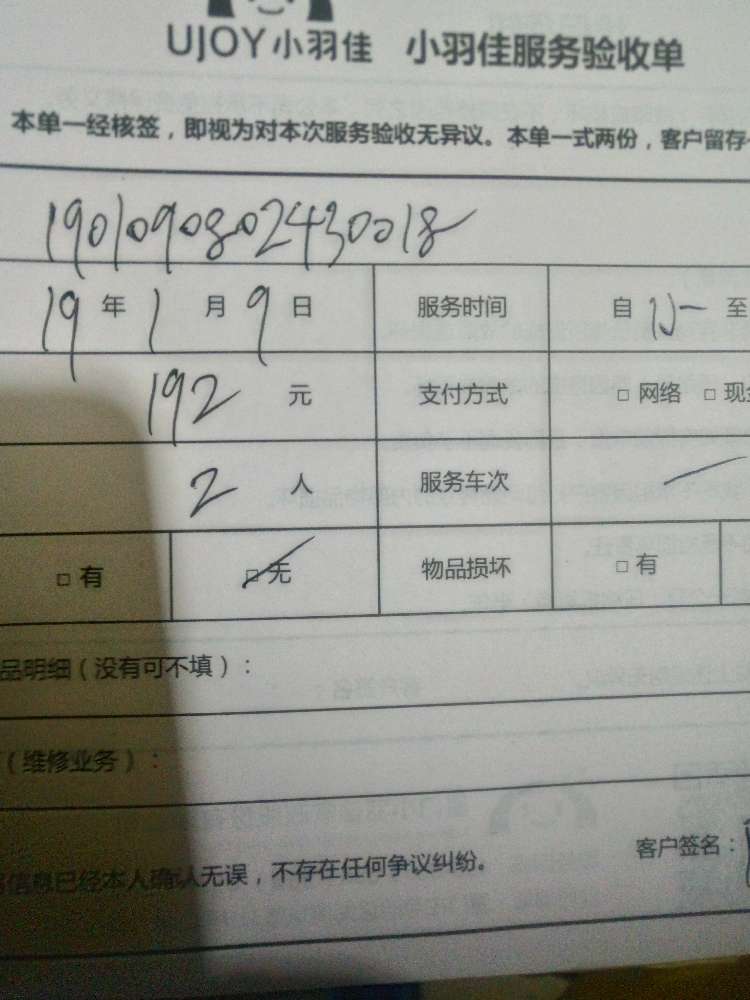 UJOY小羽佳 小羽佳服务验收单
本单一经核签，即视为对本次服务验收无异议。本单一式两份，客户留存
1901090802430018
19年1月9日 服务时间 自 至
192元 支付方式 □网络 □现金
2人 服务车次
□有 □无 物品损坏 □有
品明细（没有可不填）：
（维修业务）：
信息已经本人确认无误，不存在任何争议纠纷。 客户签名：